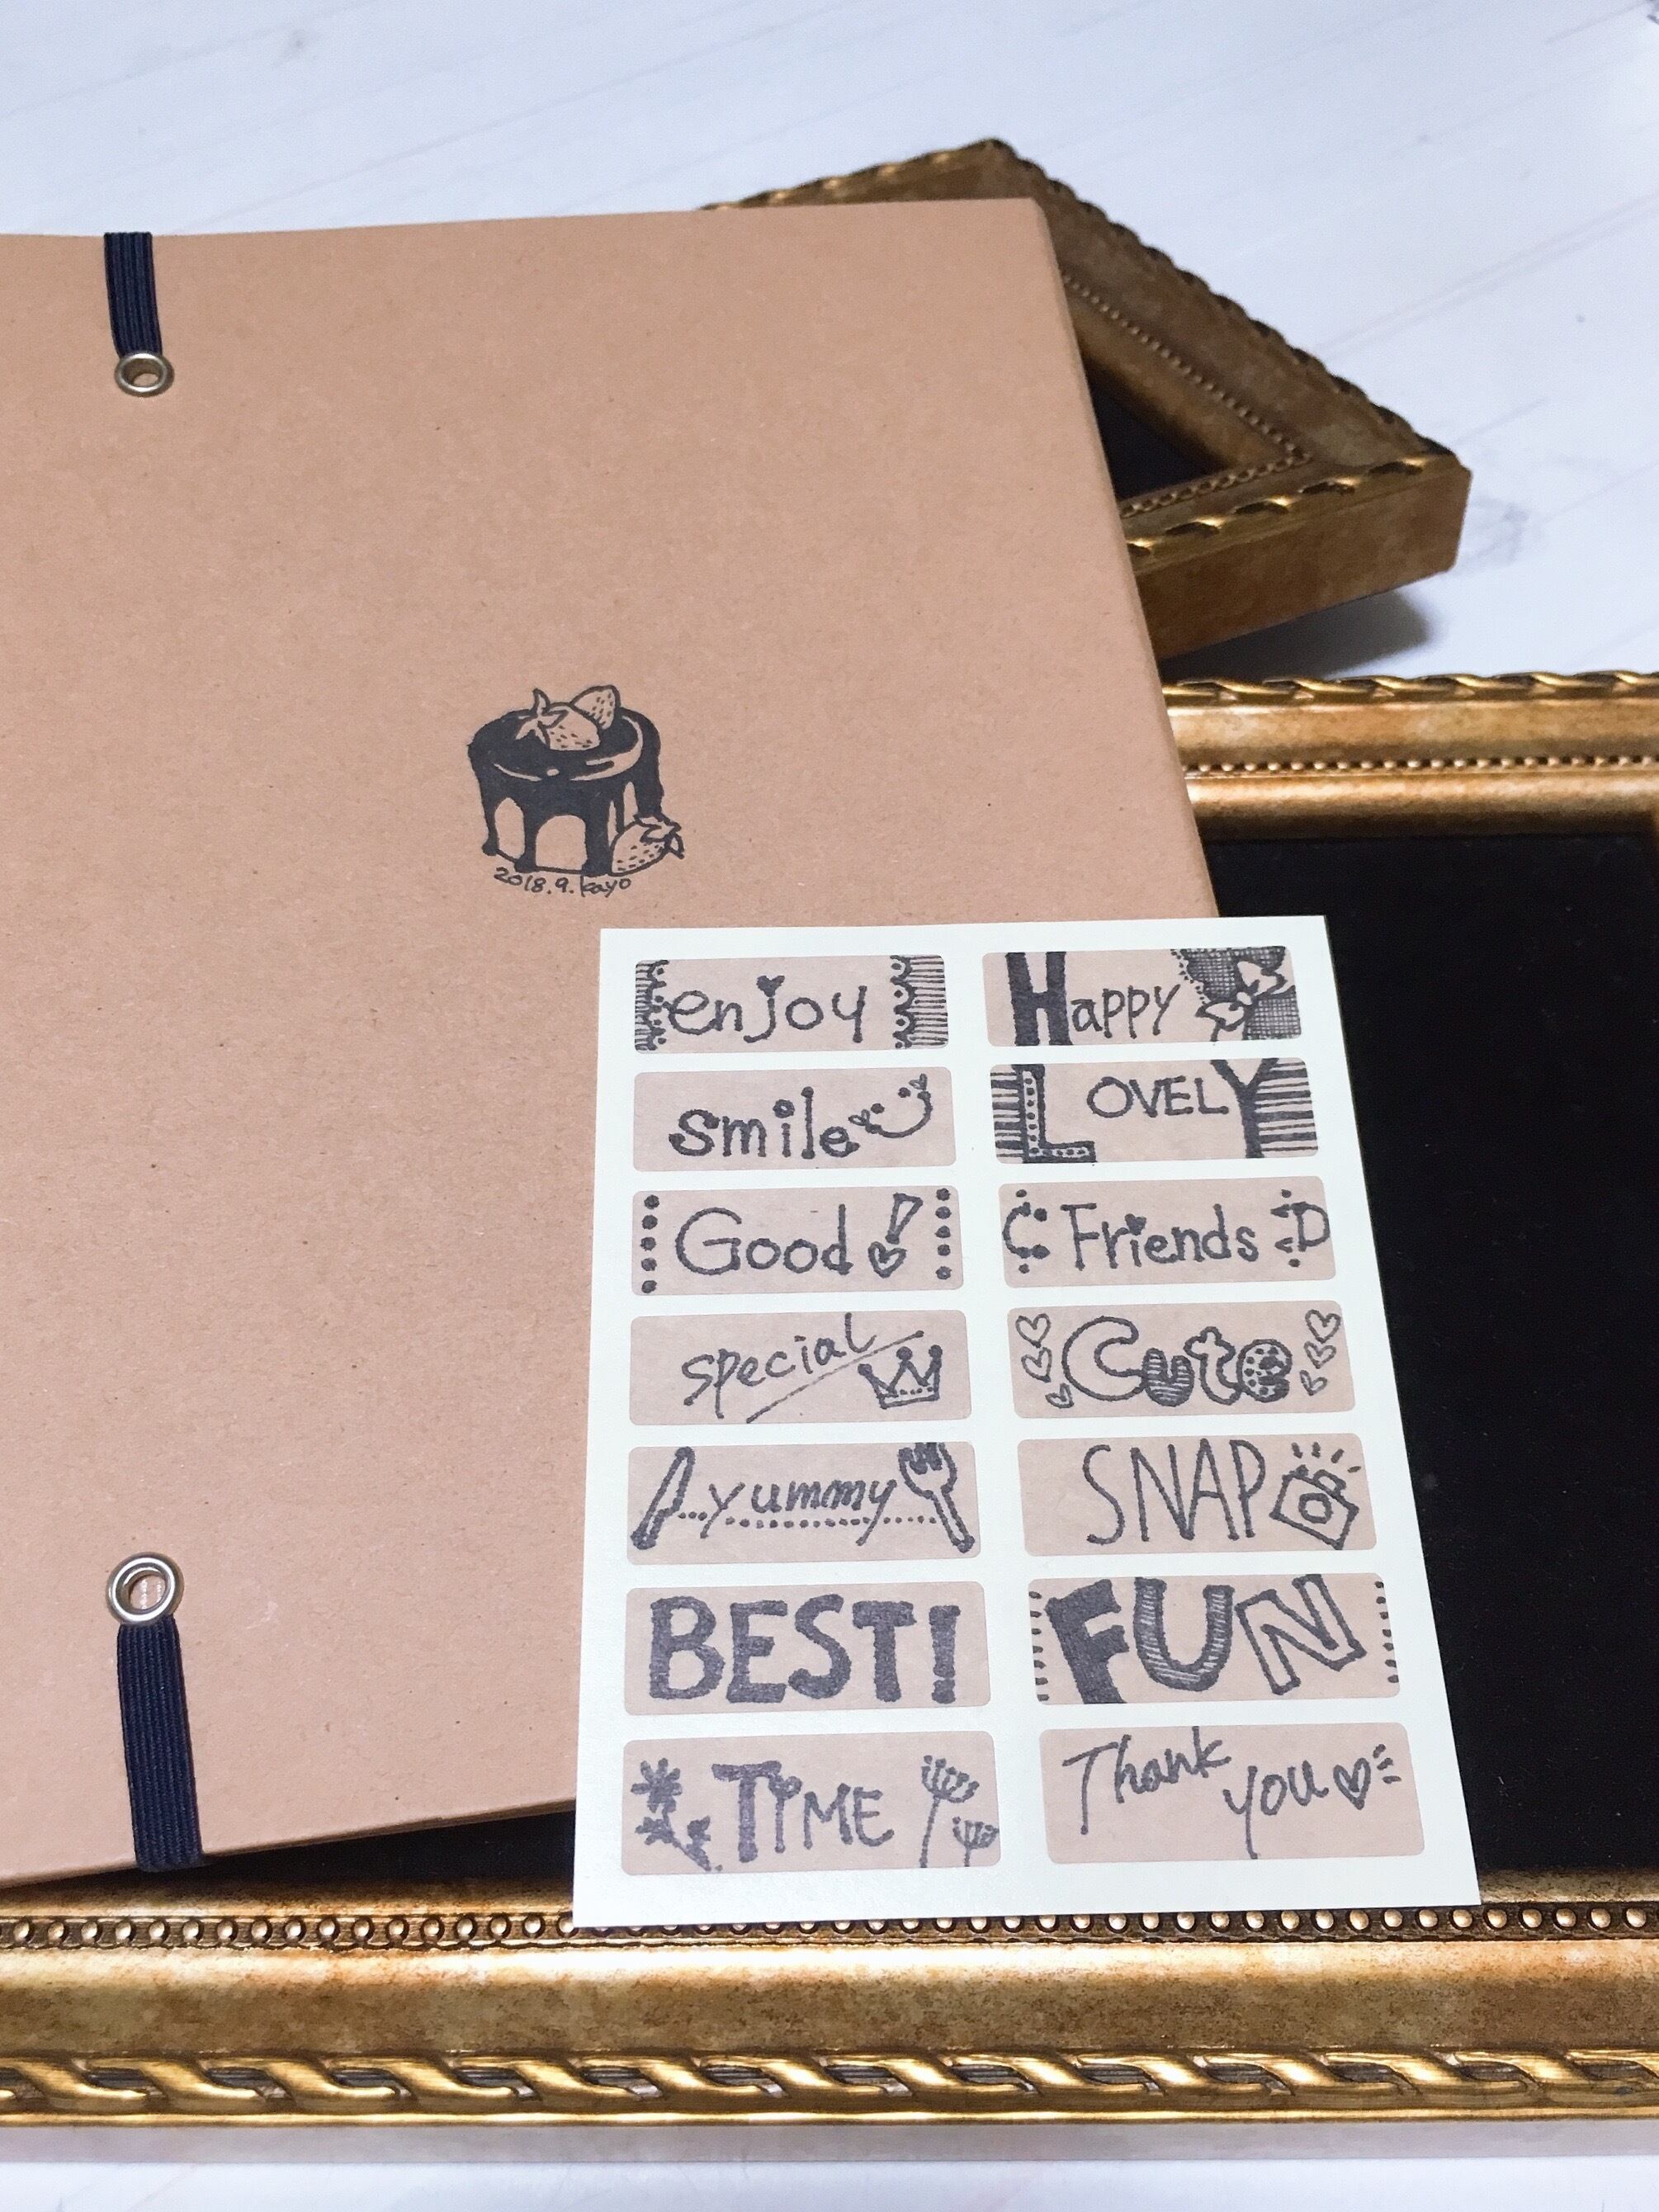 2018.9.kayo
enjoy
Happy
smile
LOVELY
Good!
Friends :D
special
Cute
yummy
SNAP
BEST!
FUN
TiME
Thank
you